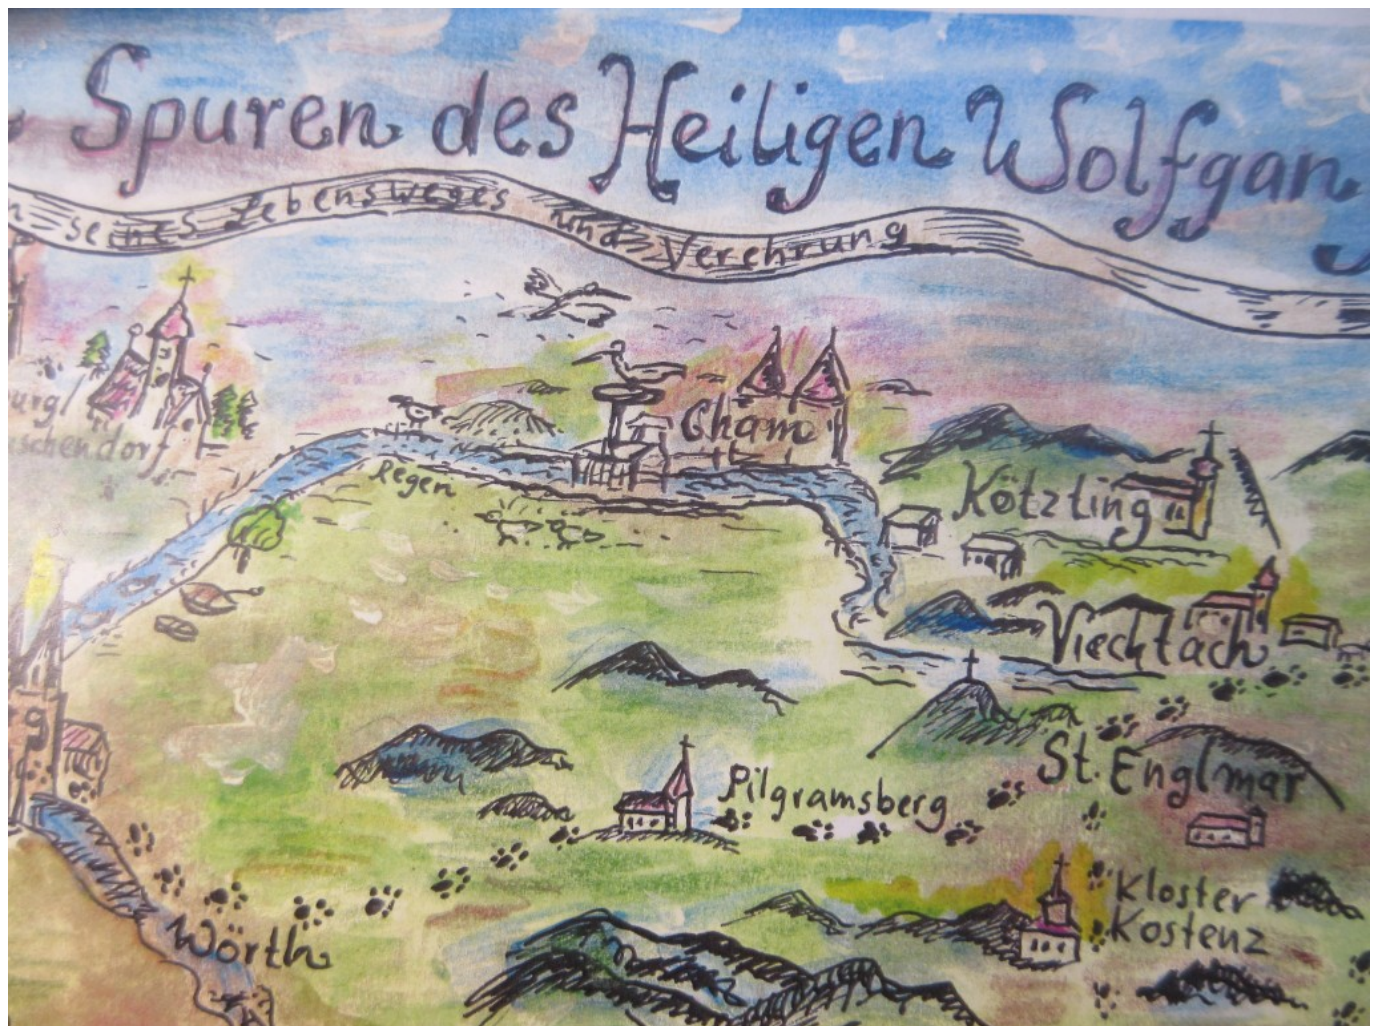 Spuren des Heiligen Wolfgan
n seines Lebensweges und Verehrung
urg
uschendorf
Cham
Regen
Kötzting
Viechtach
g
St. Englmar
Pilgramsberg
Kloster
Kostenz
Wörth